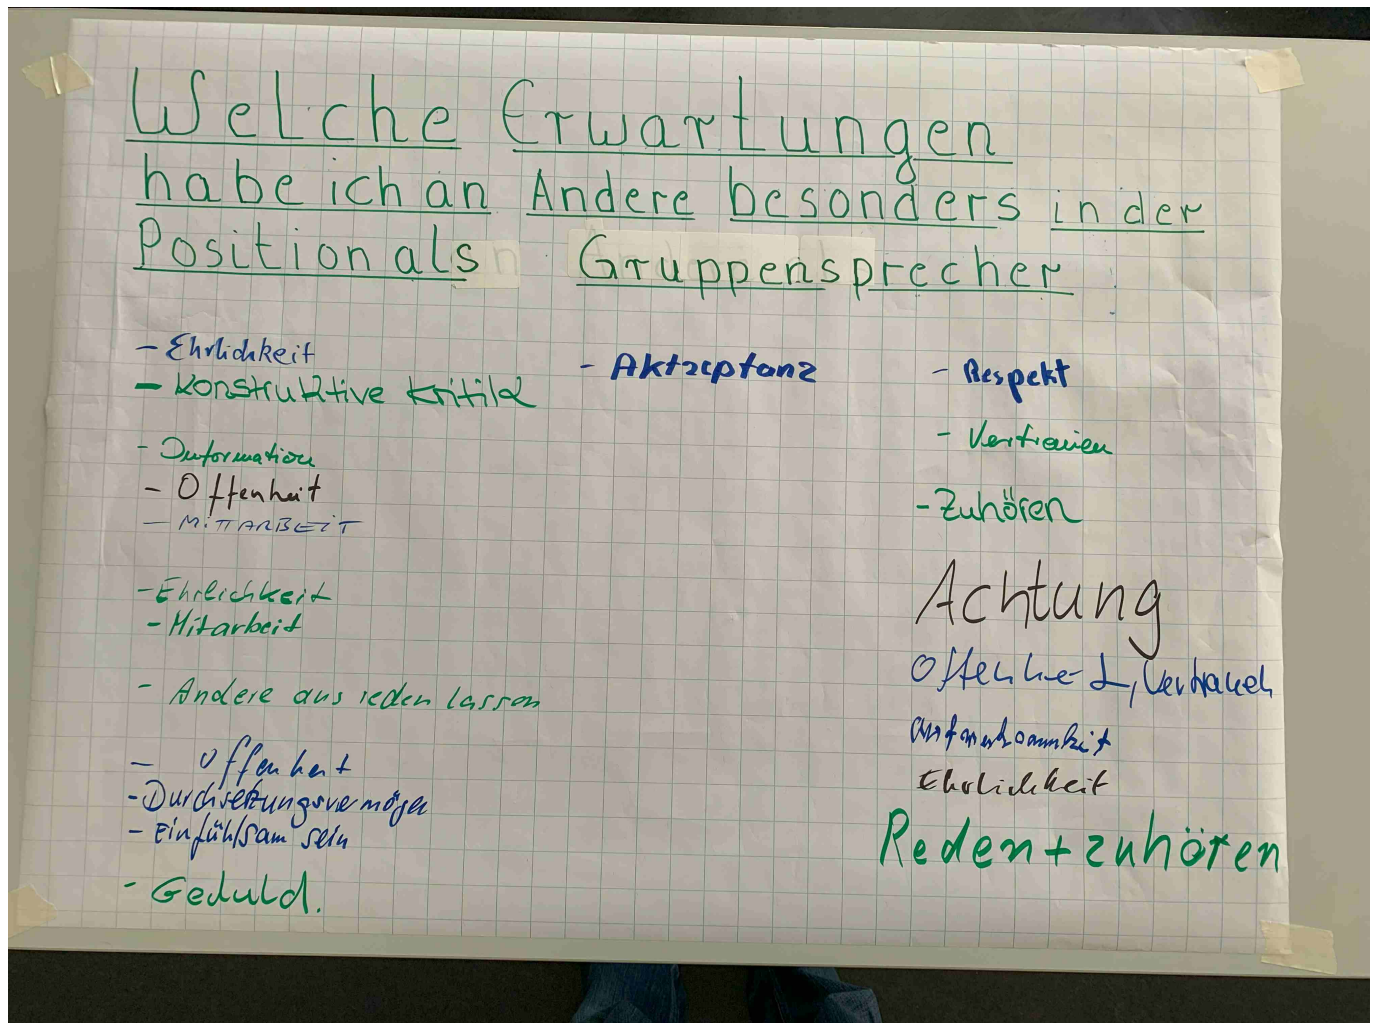 Welche Erwartungen
habe ich an Andere besonders in der
Position als Gruppensprecher
- Ehrlichkeit
- konstruktive kritik
- Information
- Offenheit
- MITTARBEIT
- Ehrlichkeit
- Mitarbeit
- Andere aus reden lassen
- Offenheit
- Durchsetzungsvermögen
- Einfühlsam sein
- Geduld.
- Aktzeptanz
- Respekt
- Vertrauen
- Zuhören
Achtung
Offenheit, Vertrauen
Aufmerksamkeit
Ehrlichkeit
Reden + zuhören